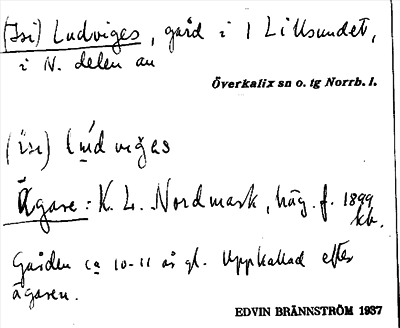 (Isi) Ludviges, gård i 1 Lillsundet,
i N. delen av
Överkalix sn o. tg Norrb. l.
(ɩsɩ) lúdvɩges
Ägare: K. L. Nordmark, häg. f. 1899
kb.
Gården ca 10-11 år gl. Uppkallad efter
ägaren.
EDVIN BRÄNNSTRÖM 1937